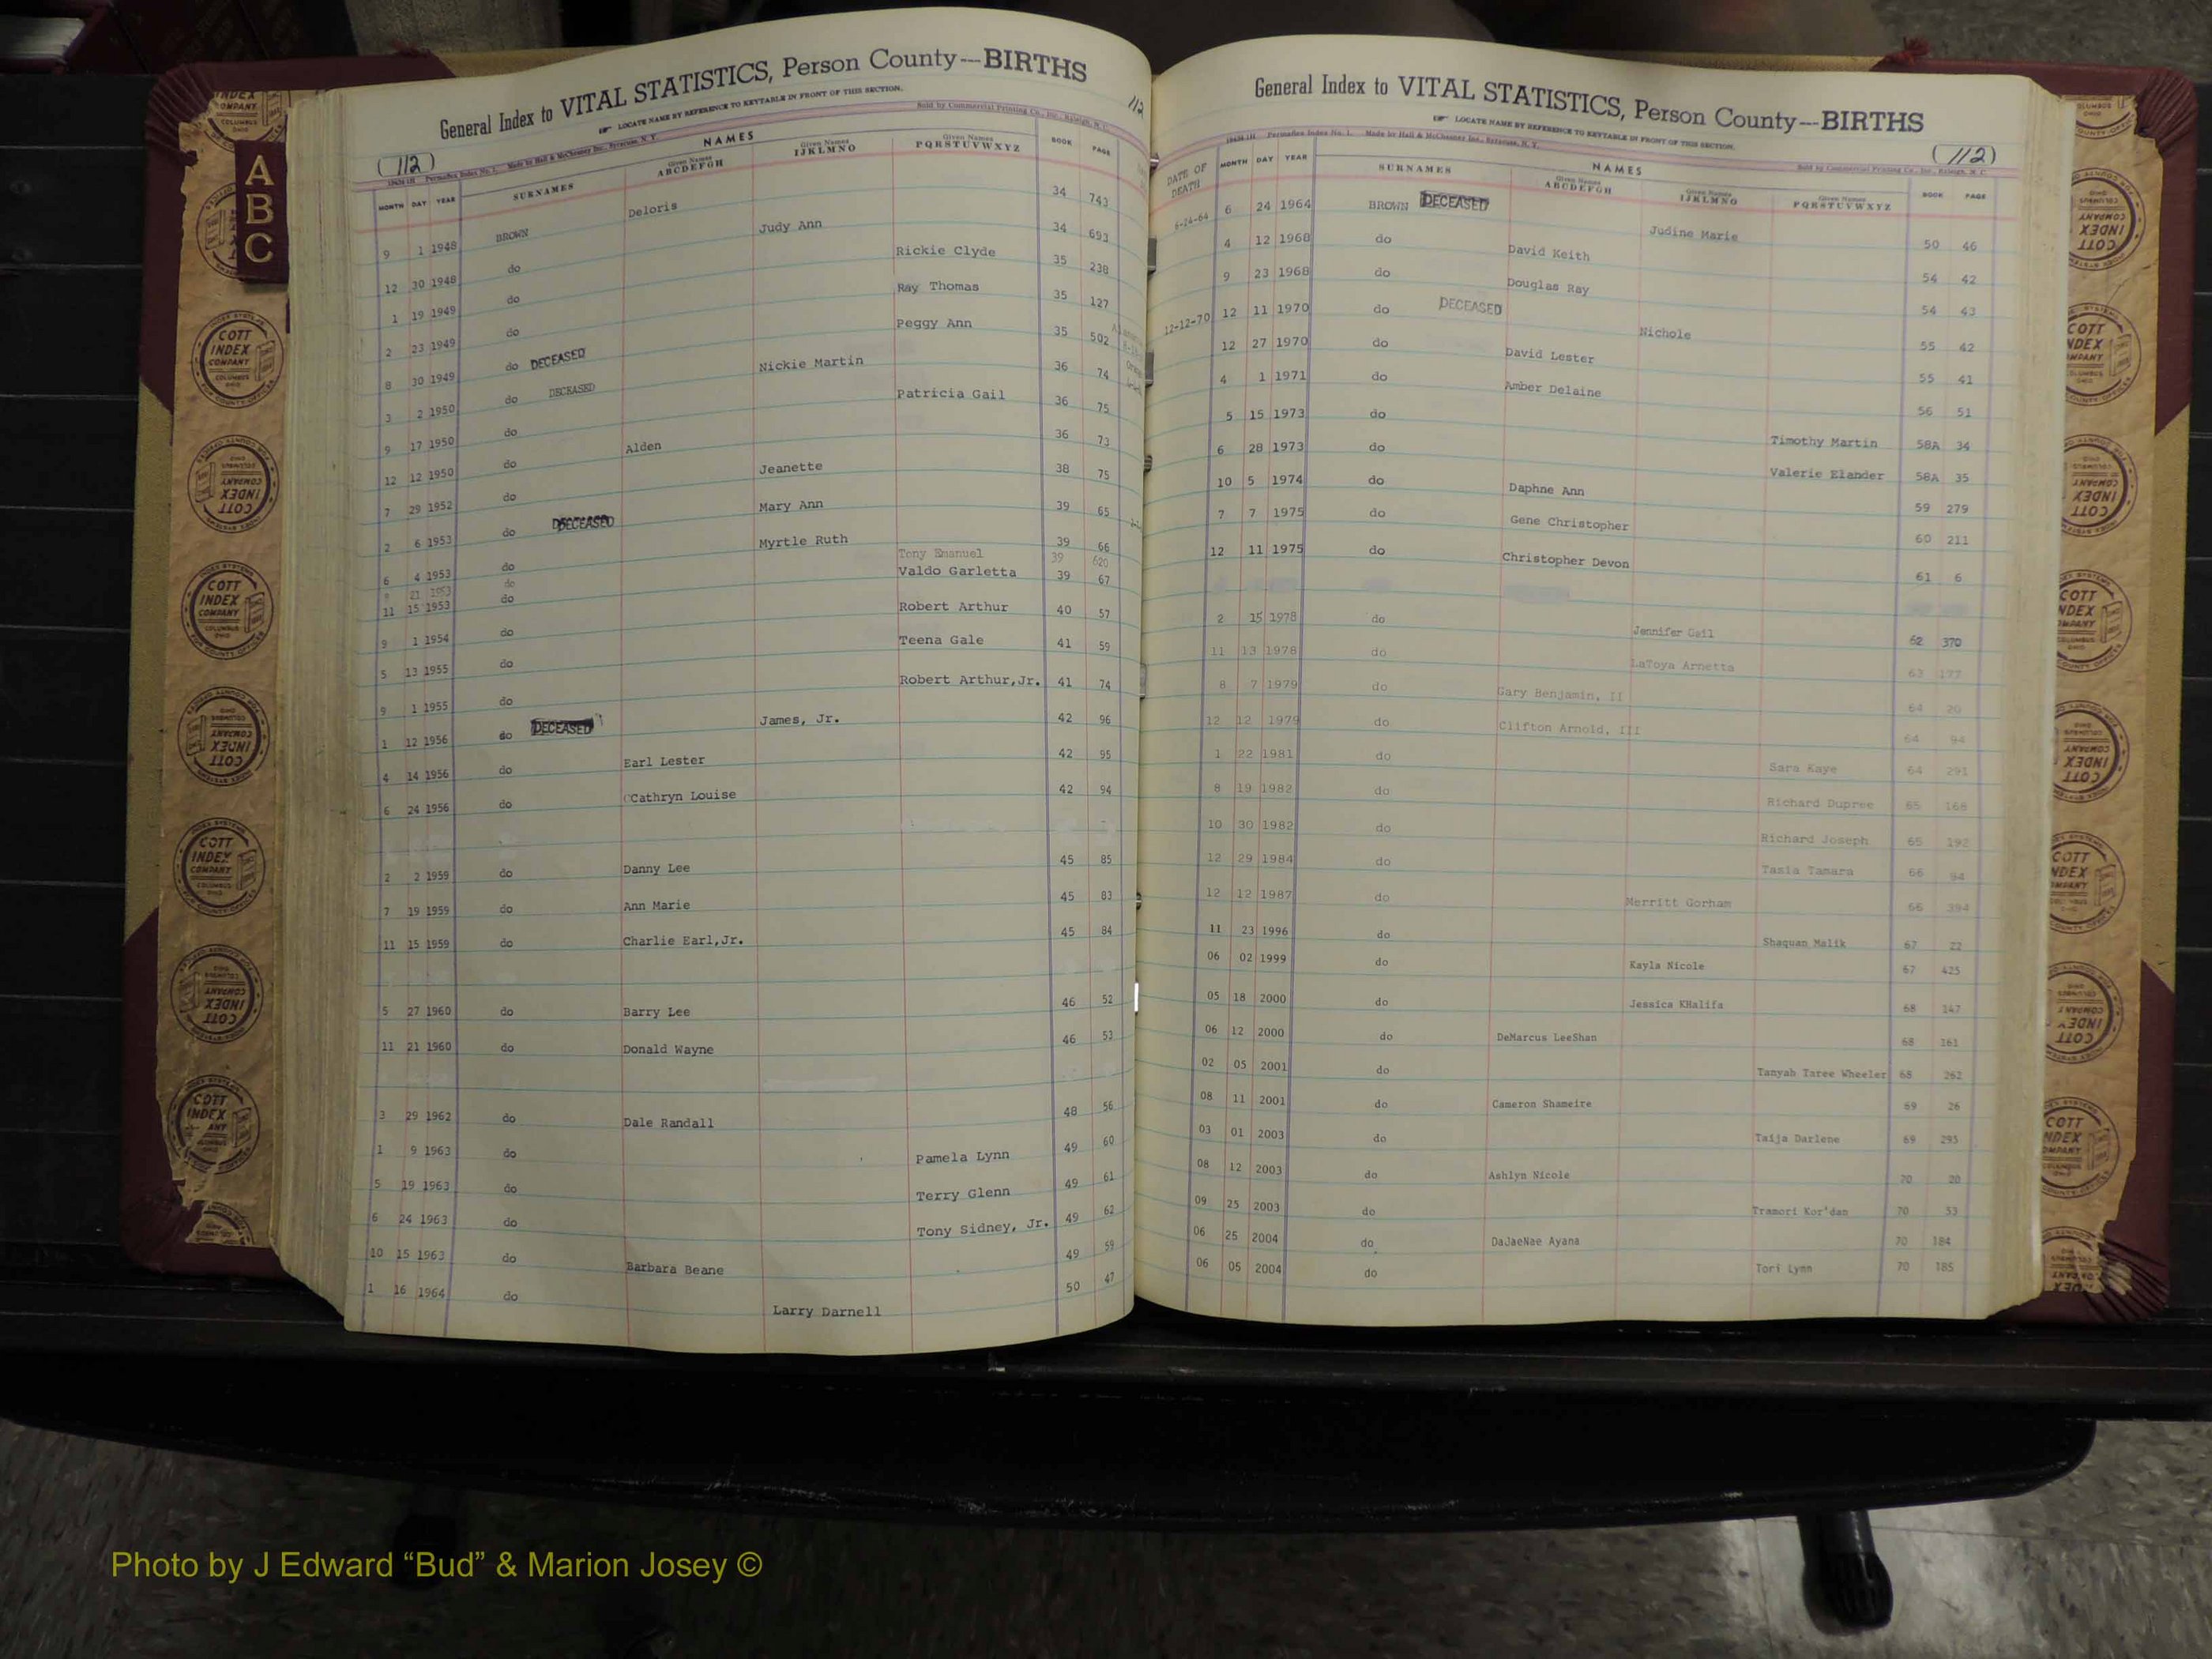 General Index to VITAL STATISTICS, Person County---BIRTHS
LOCATE NAME BY REFERENCE TO KEYTABLE IN FRONT OF THIS SECTION.
Sold by Commercial Printing Co., Inc., Raleigh, N. C.
112
(112)
Permaflex Index No. 1. Made by Hall & McChesney Inc., Syracuse, N. Y.
NAMES
MONTH DAY YEAR SURNAMES Given Names ABCDEFGH Given Names IJKLMNO Given Names PQRSTUVWXYZ BOOK PAGE
9 1 1948 BROWN Deloris 34 743
12 30 1948 do Judy Ann 34 693
1 19 1949 do Rickie Clyde 35 238
2 23 1949 do Ray Thomas 35 127
8 30 1949 do DECEASED Peggy Ann 35 502
3 2 1950 do DECEASED Nickie Martin 36 74
9 17 1950 do Patricia Gail 36 75
12 12 1950 do Alden 36 73
7 29 1952 do Jeanette 38 75
2 6 1953 do DECEASED Mary Ann 39 65
6 4 1953 do Myrtle Ruth 39 66
21 1953 do Tony Emanuel 39 620
11 15 1953 do Valdo Garletta 39 67
9 1 1954 do Robert Arthur 40 57
5 13 1955 do Teena Gale 41 59
9 1 1955 do Robert Arthur,Jr. 41 74
1 12 1956 do DECEASED James, Jr. 42 96
4 14 1956 do Earl Lester 42 95
6 24 1956 do Cathryn Louise 42 94
2 2 1959 do Danny Lee 45 85
7 19 1959 do Ann Marie 45 83
11 15 1959 do Charlie Earl,Jr. 45 84
5 27 1960 do Barry Lee 46 52
11 21 1960 do Donald Wayne 46 53
3 29 1962 do Dale Randall 48 56
1 9 1963 do Pamela Lynn 49 60
5 19 1963 do Terry Glenn 49 61
6 24 1963 do Tony Sidney, Jr. 49 62
10 15 1963 do Barbara Beane 49 59
1 16 1964 do Larry Darnell 50 47
General Index to VITAL STATISTICS, Person County---BIRTHS
LOCATE NAME BY REFERENCE TO KEYTABLE IN FRONT OF THIS SECTION.
(112)
Permaflex Index No. 1. Made by Hall & McChesney Inc., Syracuse, N. Y.
Sold by Commercial Printing Co., Inc., Raleigh, N. C.
NAMES
DATE OF DEATH MONTH DAY YEAR SURNAMES Given Names ABCDEFGH Given Names IJKLMNO Given Names PQRSTUVWXYZ BOOK PAGE
6-24-64 6 24 1964 BROWN DECEASED Judine Marie 50 46
4 12 1968 do David Keith 54 42
9 23 1968 do Douglas Ray 54 43
12-12-70 12 11 1970 do DECEASED Nichole 55 42
12 27 1970 do David Lester 55 41
4 1 1971 do Amber Delaine 56 51
5 15 1973 do Timothy Martin 58A 34
6 28 1973 do Valerie Elander 58A 35
10 5 1974 do Daphne Ann 59 279
7 7 1975 do Gene Christopher 60 211
12 11 1975 do Christopher Devon 61 6
2 15 1978 do Jennifer Gail 62 370
11 13 1978 do LaToya Arnetta 63 177
8 7 1979 do Gary Benjamin, II 64 20
12 12 1979 do Clifton Arnold, III 64 94
1 22 1981 do Sara Kaye 64 291
8 19 1982 do Richard Dupree 65 168
10 30 1982 do Richard Joseph 65 192
12 29 1984 do Tasia Tamara 66 94
12 12 1987 do Merritt Gorham 66 394
11 23 1996 do Shaquan Malik 67 22
06 02 1999 do Kayla Nicole 67 425
05 18 2000 do Jessica KHalifa 68 147
06 12 2000 do DeMarcus LeeShan 68 161
02 05 2001 do Tanyah Taree Wheeler 68 262
08 11 2001 do Cameron Shameire 69 26
03 01 2003 do Taija Darlene 69 295
08 12 2003 do Ashlyn Nicole 70 20
09 25 2003 do Tramori Kor'dan 70 53
06 25 2004 do DaJaeNae Ayana 70 184
06 05 2004 do Tori Lynn 70 185
A
B
C
COTT INDEX COMPANY
COLUMBUS OHIO
INDEX SYSTEMS
FOR COUNTY OFFICES
Photo by J Edward “Bud” & Marion Josey ©